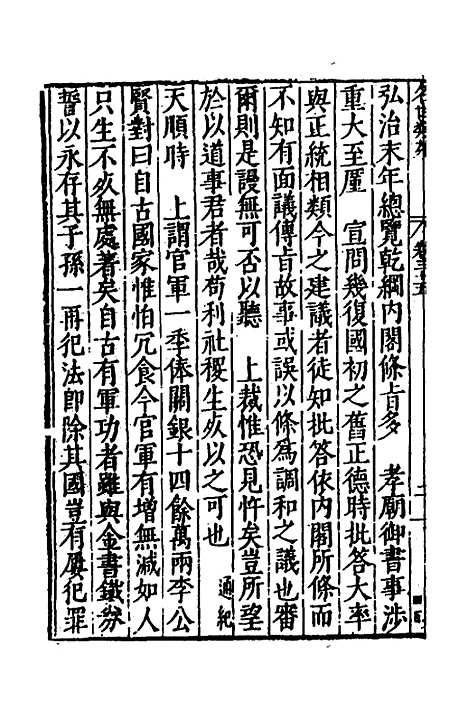 弘治末年總覽乾綱內閣條旨多　孝廟御書事涉
重大至廑　宣問幾復國初之舊正德時批答大率
與正統相類今之建議者徒知批答依內閣所條而
不知有面議傳旨故事或誤以條爲調和之議也審
爾則是謾無可否以聽　上裁惟恐見忤矣豈所望
於以道事君者哉苟利社稷生死以之可也　通紀
天順時　上謂官軍一季俸關銀十四餘萬兩李公
賢對曰自古國家惟怕冗食今官軍有增無減如人
只生不死無處著矣自古有軍功者雖與金書鐵券
誓以永存其子孫一再犯法即除其國豈有屢犯罪